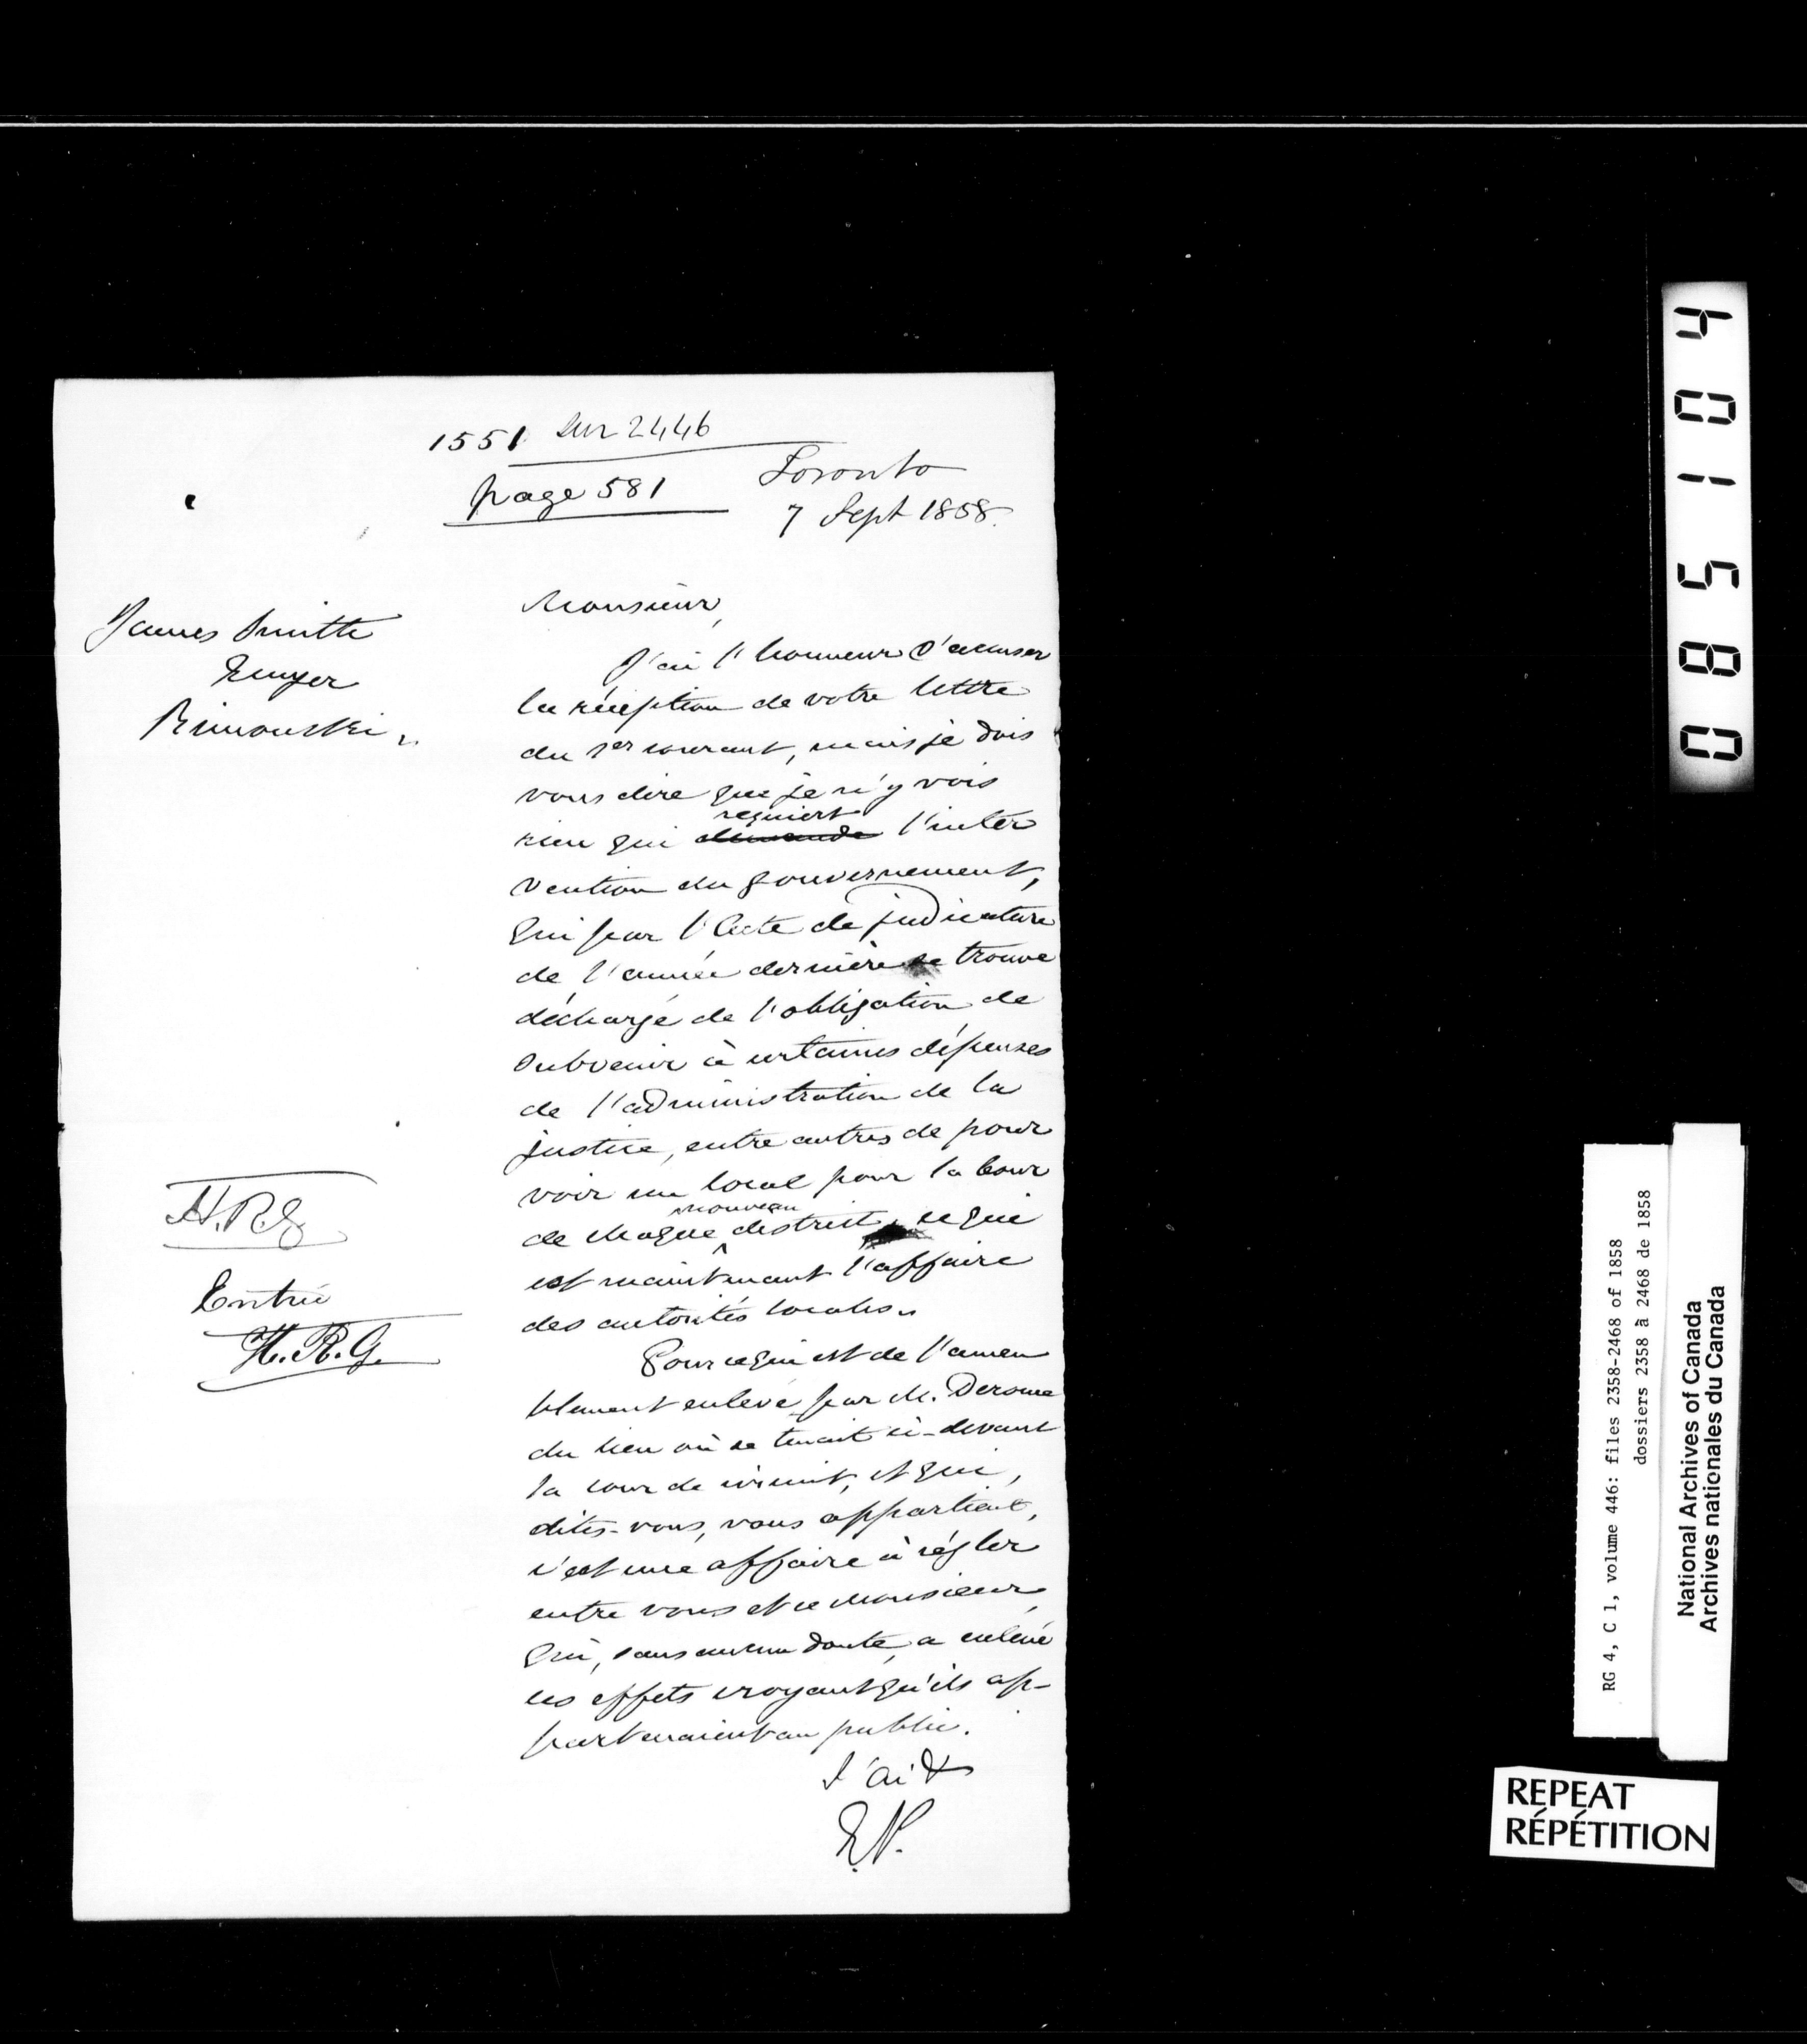 1551 sur 2446
page 581
Toronto
7 Sept 1858.
James Smith
Ecuyer
Rimouski
Monsieur,
J'ai l'honneur d'accuser
la réception de votre lettre
du 1er courant, mais je dois
vous dire que je n'y vois
requiert
rien qui demande l'inter
vention du gouvernement,
qui par l'Acte de judicature
de l'année dernière se trouve
déchargé de l'obligation de
subvenir à certaines dépenses
de l'administration de la
justice, entre autres de pour
voir un local pour la Cour
nouveau
de chaque ^ district, ce qui
est maintenant l'affaire
des autorités locales.
Pour ce qui est de l'ameu
blement enlevé par M. Derome
du lieu où se tenait ci-devant
la cour de circuit, et qui,
dites-vous, vous appartient,
c'est une affaire à régler
entre vous et ce Monsieur,
qui, sans aucun doute, a enlevé
ces effets croyant qu'ils ap-
partenaient au public.
J'ai &
E.P.
H.R.G
Entrée
H.R.G.
085104
RG 4, C 1, volume 446: files 2358-2468 of 1858
dossiers 2358 à 2468 de 1858
National Archives of Canada
Archives nationales du Canada
REPEAT
RÉPÉTITION